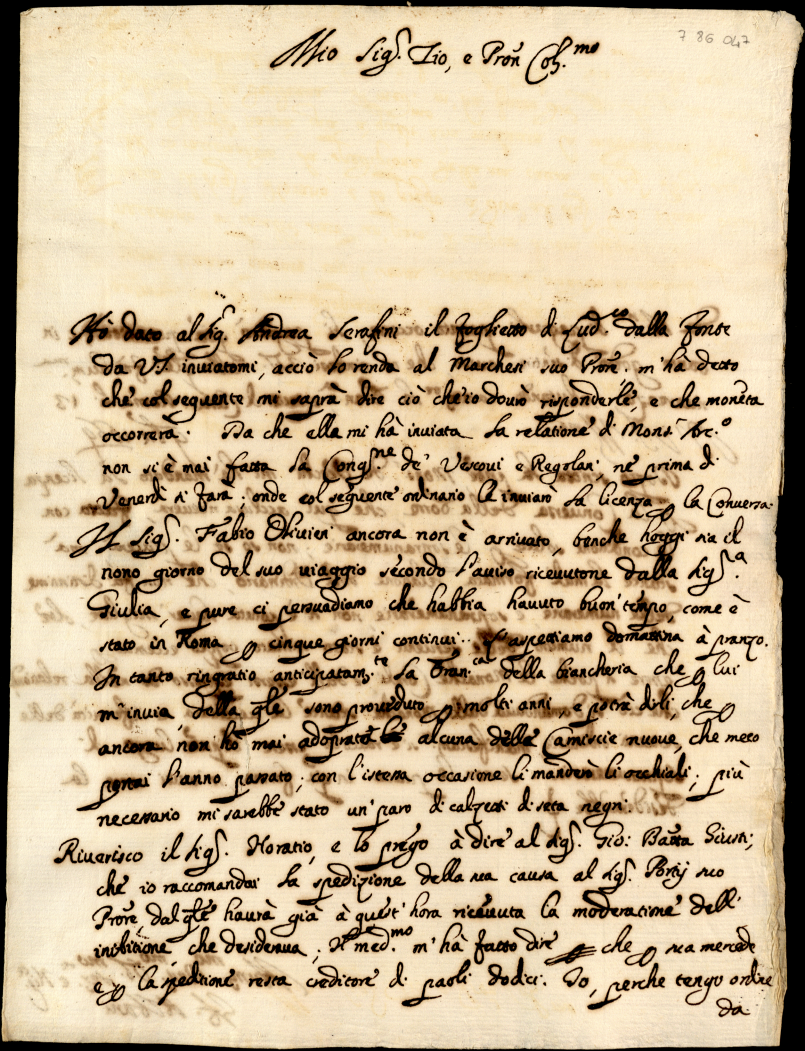 7 86 047
Mio Sig.r Zio, e Pron Col.mo
Hò dato al Sig. Andrea Serafini il foglietto di Lud.co dalla fonte
da VS. inviatomi, acciò lo renda al Marchesi suo Prore. m'hà detto
che col seguente mi saprà dire ciò che io dovrò risponderle, e che moneta
occorrerà. Da che ella mi hà inviata la relatione di Mons.r Arc.o
non si è mai fatta la Cong.ne de' Vescovi e Regolari, nè prima di
Venerdì si farà; onde col seguente ordinario le inviarò la licenza p la Conversa.
Il Sig.r Fabio Olivieri ancora non è arrivato, benche hoggi sia il
nono giorno del suo viaggio secondo l'aviso ricevutone dalla Sig.ra
Giulia, e pure ci persuadiamo che habbia havuto buon tempo, come è
stato in Roma p cinque giorni continui.. L'aspettiamo domattina à pranzo.
In tanto ringratio anticipatam.te la Fran.ca della biancheria che p lui
m'invia, della qle sono proveduto p molti anni, e potrà dirli, che p
ancora non hò mai adoprato alcuna delle Camiscie nuove, che meco
portai l'anno passato; con l'istessa occasione li manderò li occhiali; più
necessario mi sarebbe stato un' paro di calzetti di seta negri.
Riverisco il Sig.r Horatio, e lo prego à dire al Sig.r Gio: Batta Giusti;
che io raccomandai la spedizione della sua causa al Sig.r Portij suo
Prore, dal qle haurà già à quest'hora ricevuta la moderatione dell'
inibitione, che desiderava; Il med.mo m'hà fatto dire che p sua mercede
e p la speditione resta creditore di paoli dodici. Io, perche tengo ordine
da